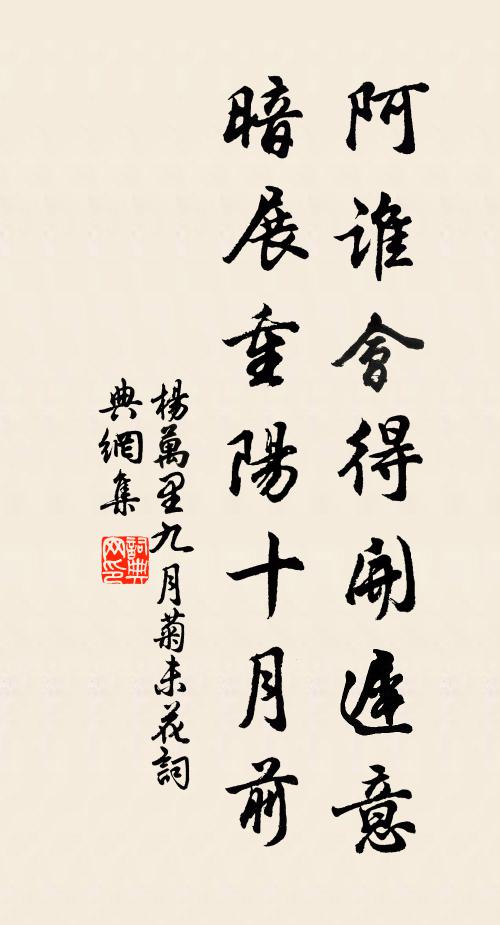 阿誰會得開遲意
暗展重陽十月前
楊萬里九月菊未花詞
典網集
詞典
网印